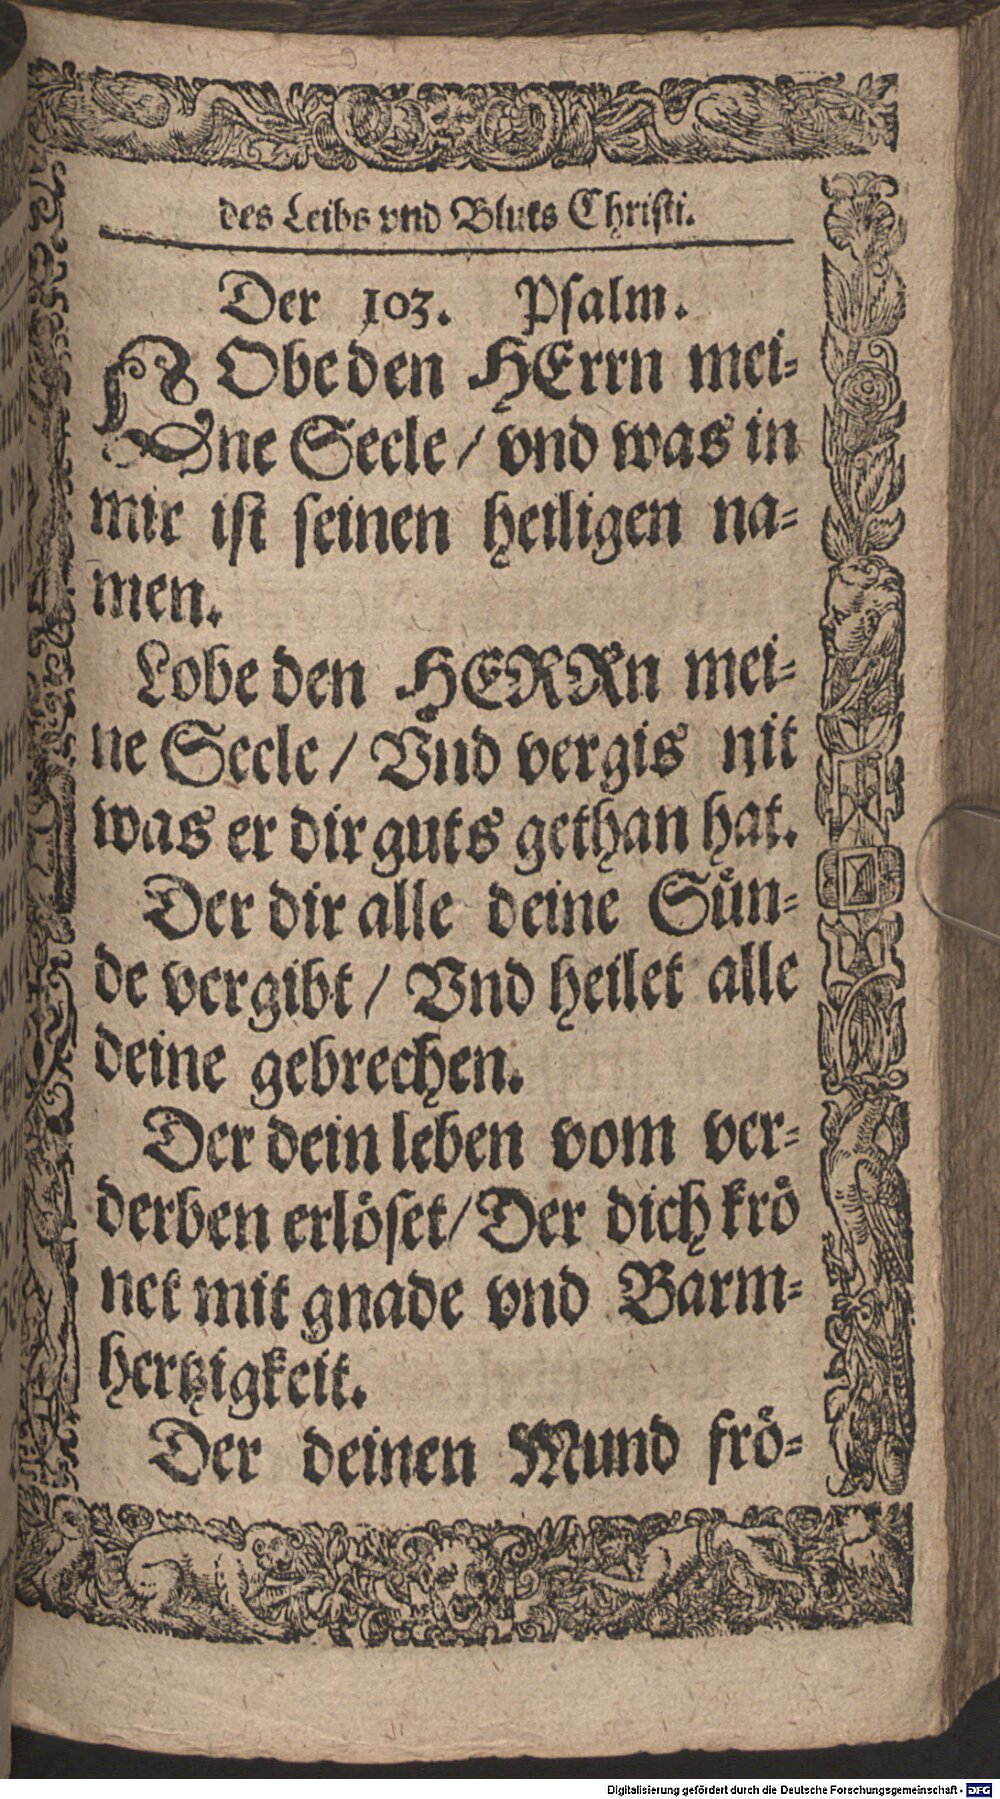 des Leibs vnd Bluts Christi.
Der 103. Psalm.
LObe den HErrn mei-
ne Seele / vnd was in
mir ist seinen heiligen na-
men.
Lobe den HERRn mei-
ne Seele / Vnd vergis nit
was er dir guts gethan hat.
Der dir alle deine Sün-
de vergibt / Vnd heilet alle
deine gebrechen.
Der dein leben vom ver-
derben erlöset / Der dich krö
net mit gnade vnd Barm-
hertzigkeit.
Der deinen Mund frö-
Digitalisierung gefördert durch die Deutsche Forschungsgemeinschaft - DFG